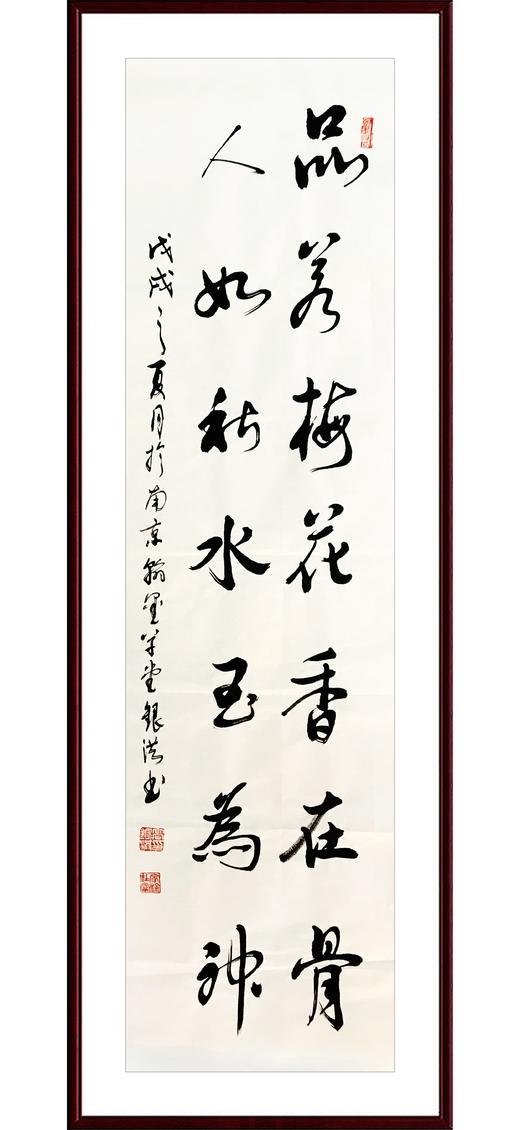 品若梅花香在骨
人如秋水玉為神
戊戌之夏月於南京翰墨草堂銀洪书